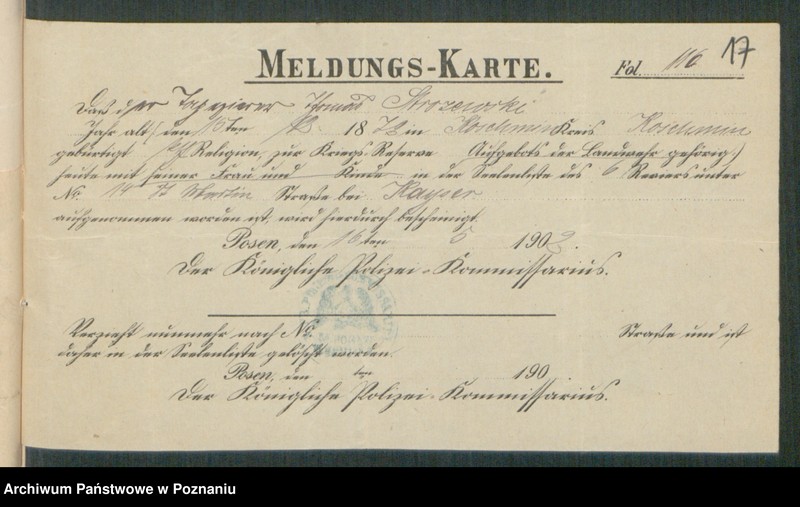 MELDUNGS-KARTE.
Fol. 116 17
Daß d er Tapezierer Thomas Strozewski
Jahr alt, den 16ten 12. 1873 in Koschmin Kreis Koschmin
gebürtigt Religion, zur Kriegs-Reserve Aufgebots der Landwehr gehörig,
heute mit seiner Frau und Kinde in der Seelenliste des 6 Reviers unter
No. 14 St Martin Straße bei Kayser
aufgenommen worden ist, wird hierdurch bescheinigt.
Posen, den 16ten 5 1902.
Der Königliche Polizei-Kommissarius.
Verzieht nunmehr nach No. Straße und ist
daher in der Seelenliste gelöscht worden.
Posen, den ten 190
Der Königliche Polizei-Kommissarius.
Archiwum Państwowe w Poznaniu